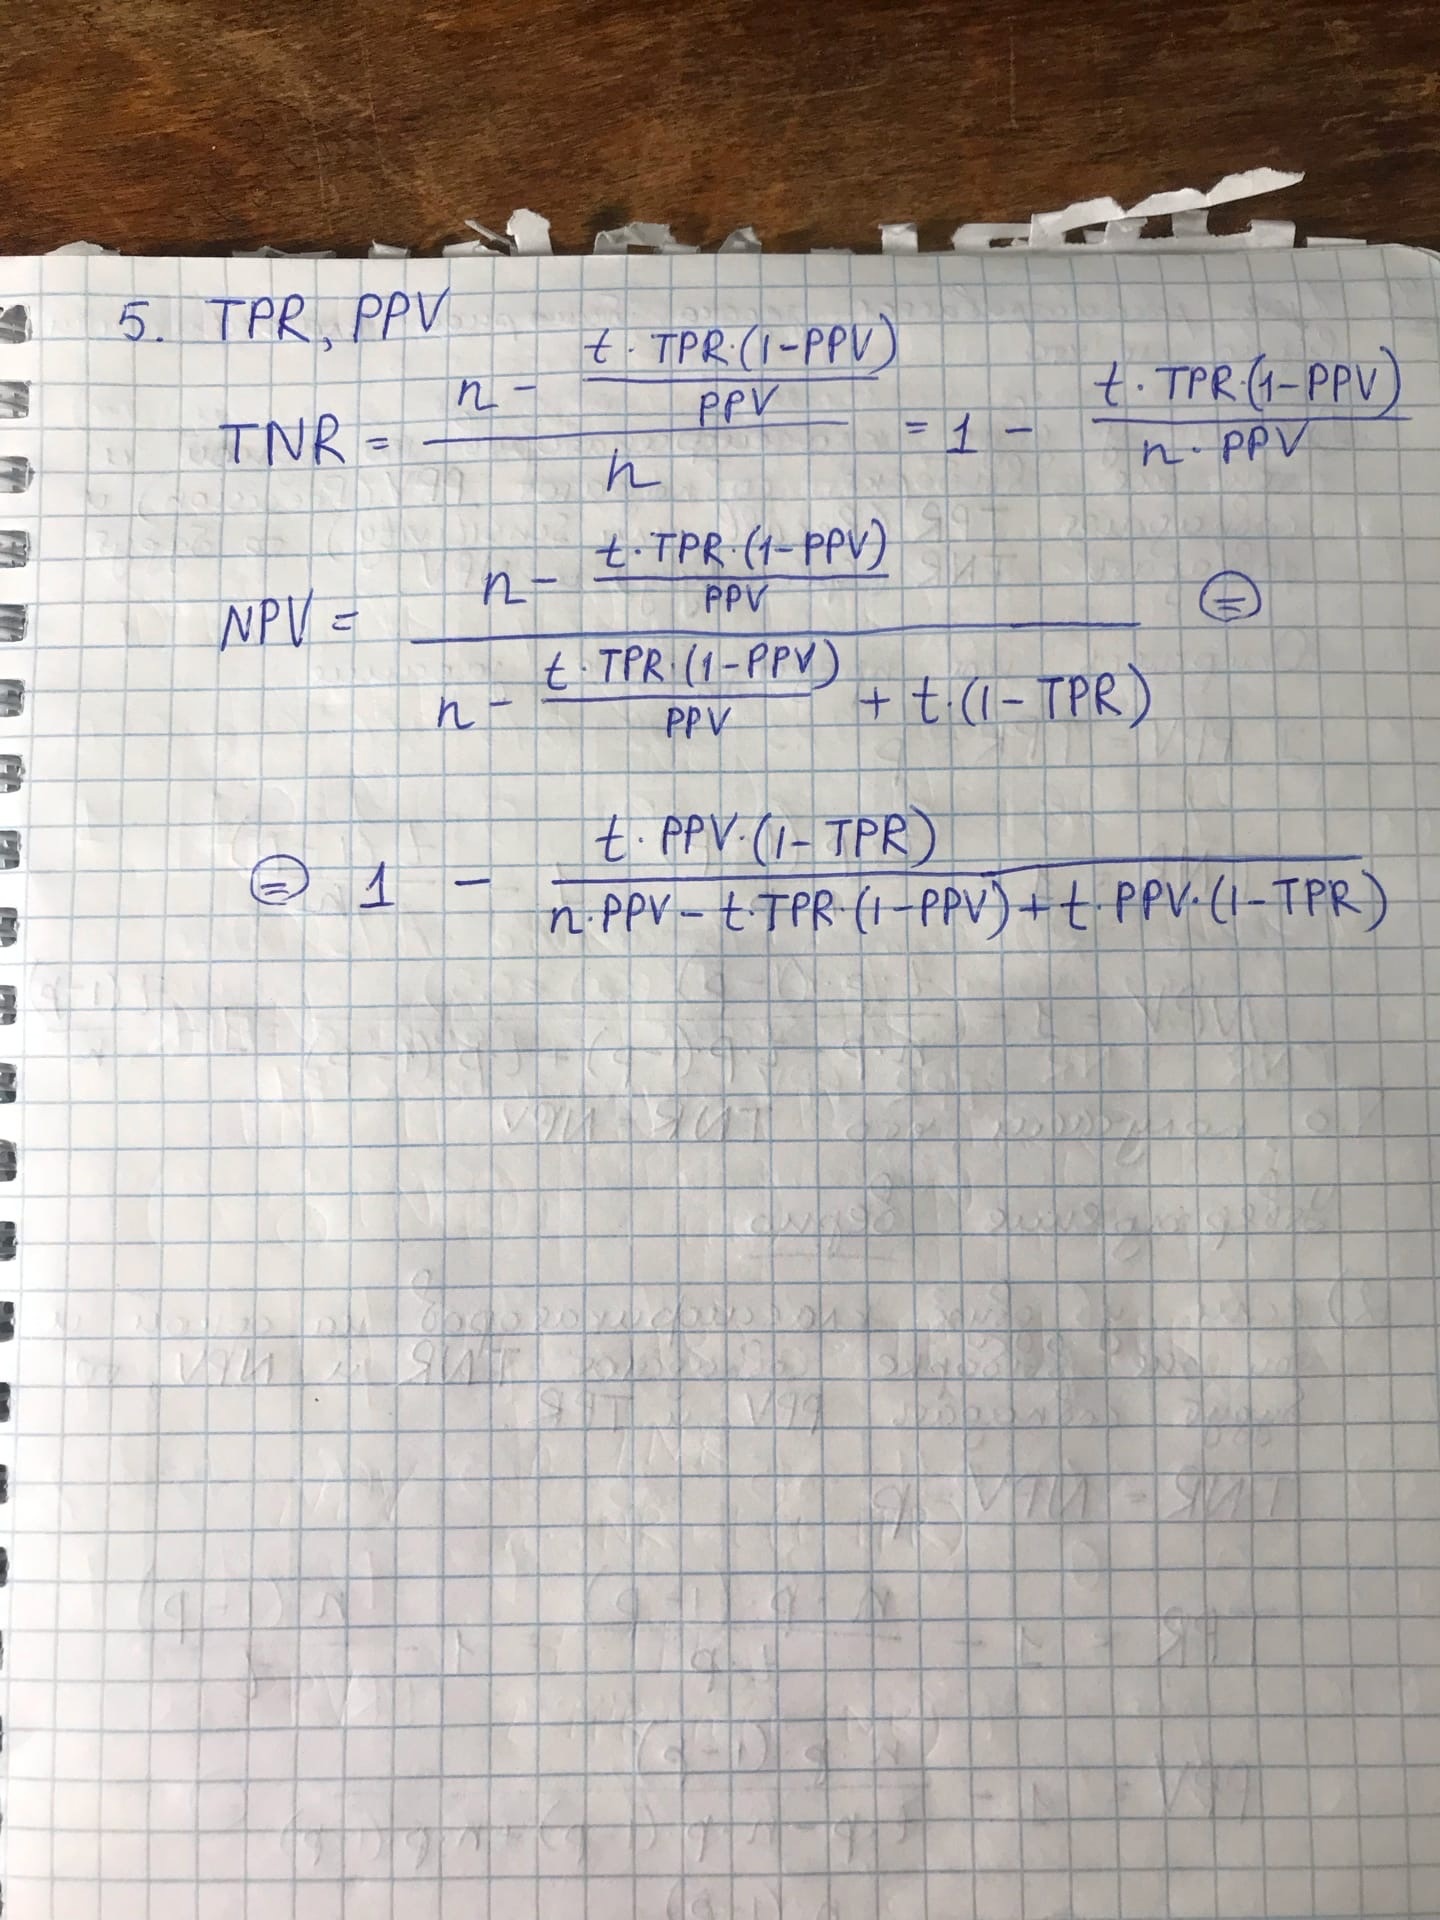 5. TPR, PPV
TNR = (n - (t · TPR · (1-PPV)) / PPV) / n = 1 - (t · TPR · (1-PPV)) / (n · PPV)
NPV = (n - (t · TPR · (1-PPV)) / PPV) / (n - (t · TPR · (1-PPV)) / PPV + t · (1-TPR)) ⊜
⊜ 1 - (t · PPV · (1-TPR)) / (n · PPV - t · TPR · (1-PPV) + t · PPV · (1-TPR))